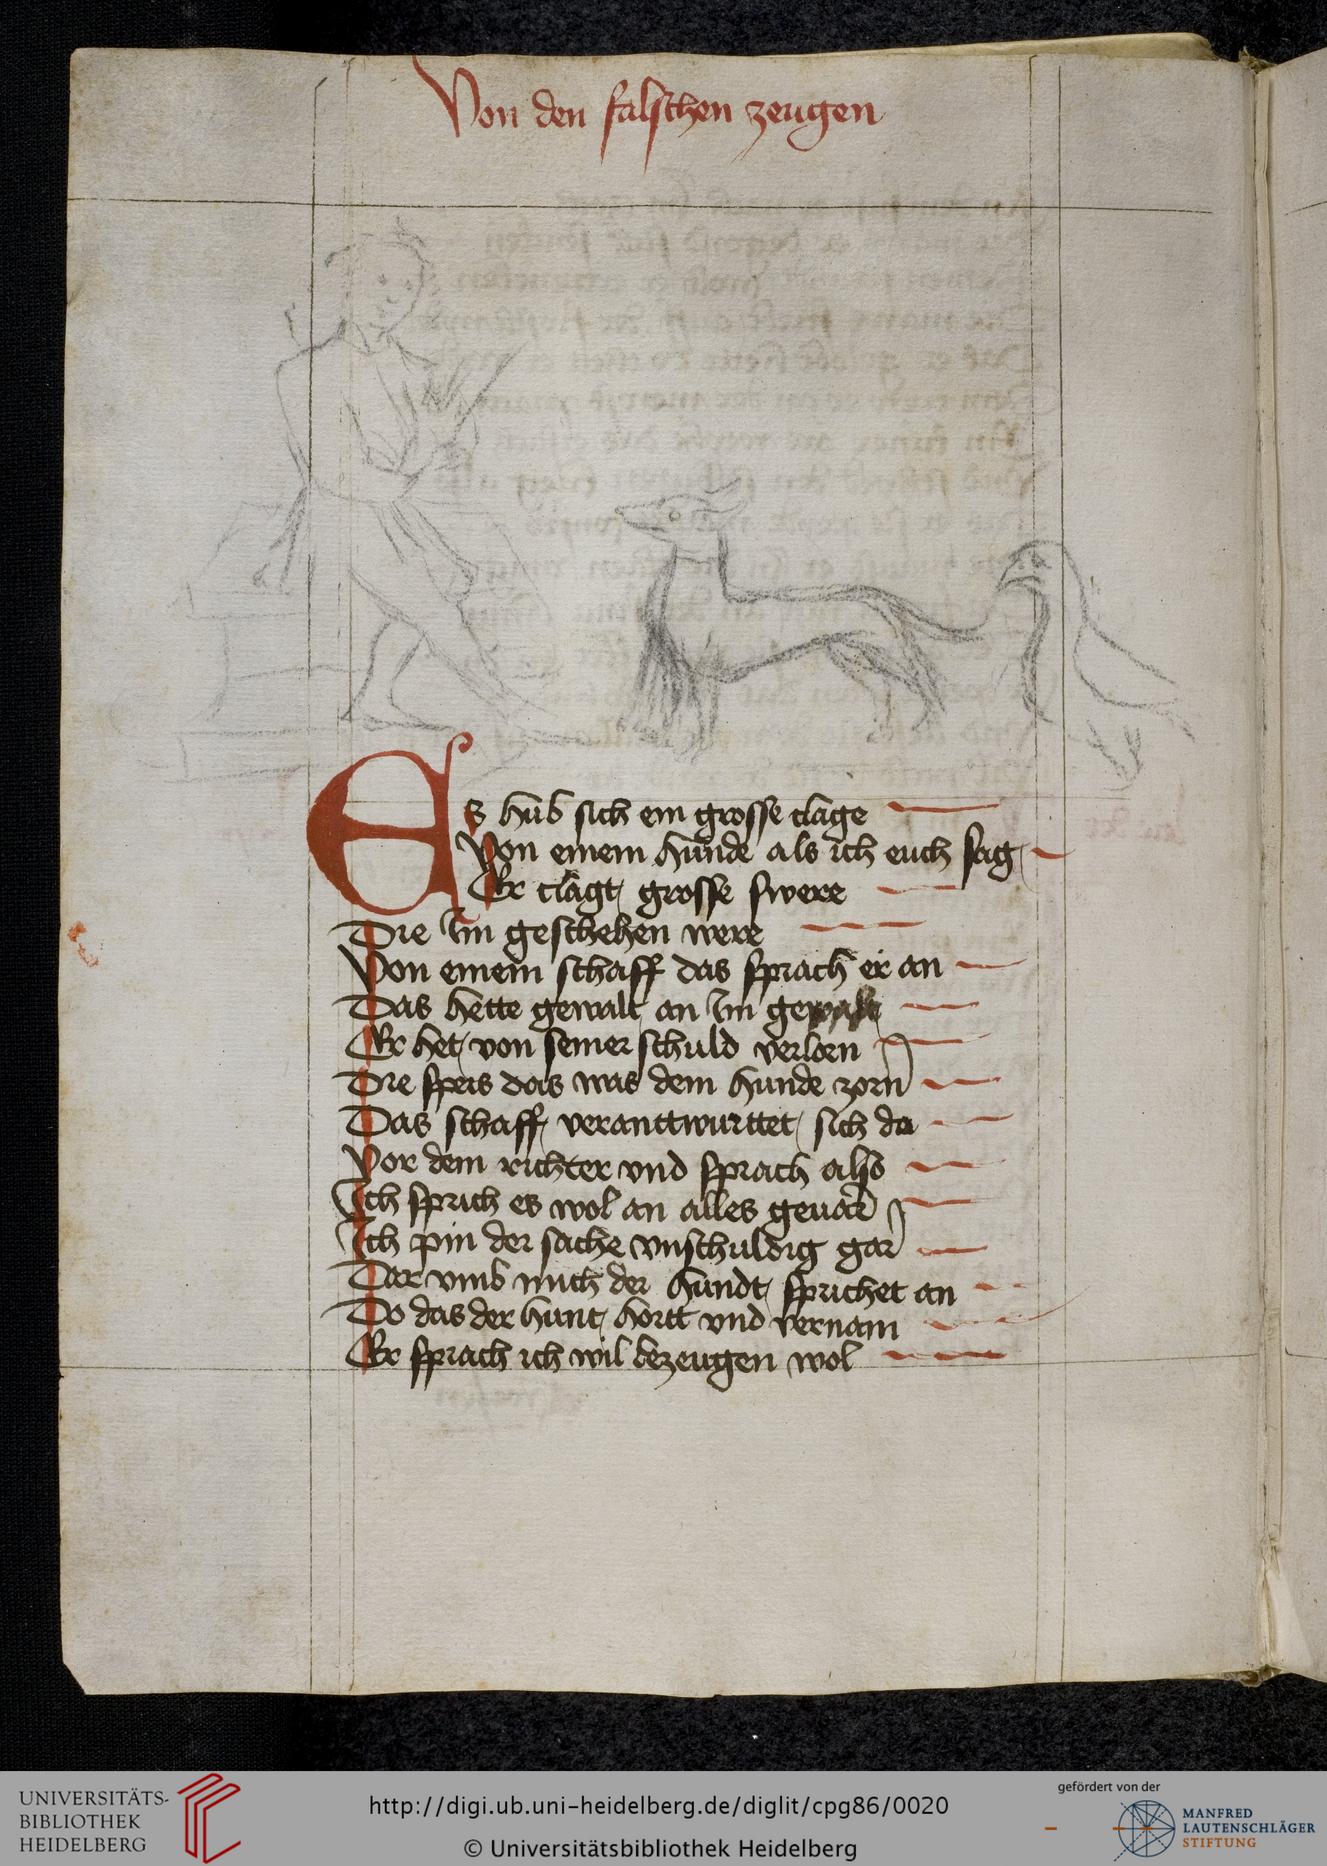 Von den falschen zeugen
Es hub sich ein grosse clage
Von einem hunde als ich euch sag
Er clagt grosse swere
Die Im geschehen were
Von einem schaff das sprach er an
Das hette gewalt an Im
Er het von seiner schuld verlorn
Die speis das was dem hunde zorn
Das schaff veranttwurttet sich da
Vor dem richter vnd sprach also
Ich sprich es wol an alles geuar
Ich pin der sache vnschuldig gar
Dar vmb mich der hundt sprichet an
Do das der hunt hortt vnd vernam
Er sprach ich wil bezeugen wol
UNIVERSITÄTS-
BIBLIOTHEK
HEIDELBERG
http://digi.ub.uni-heidelberg.de/diglit/cpg86/0020
© Universitätsbibliothek Heidelberg
gefördert von der
MANFRED
LAUTENSCHLÄGER
STIFTUNG